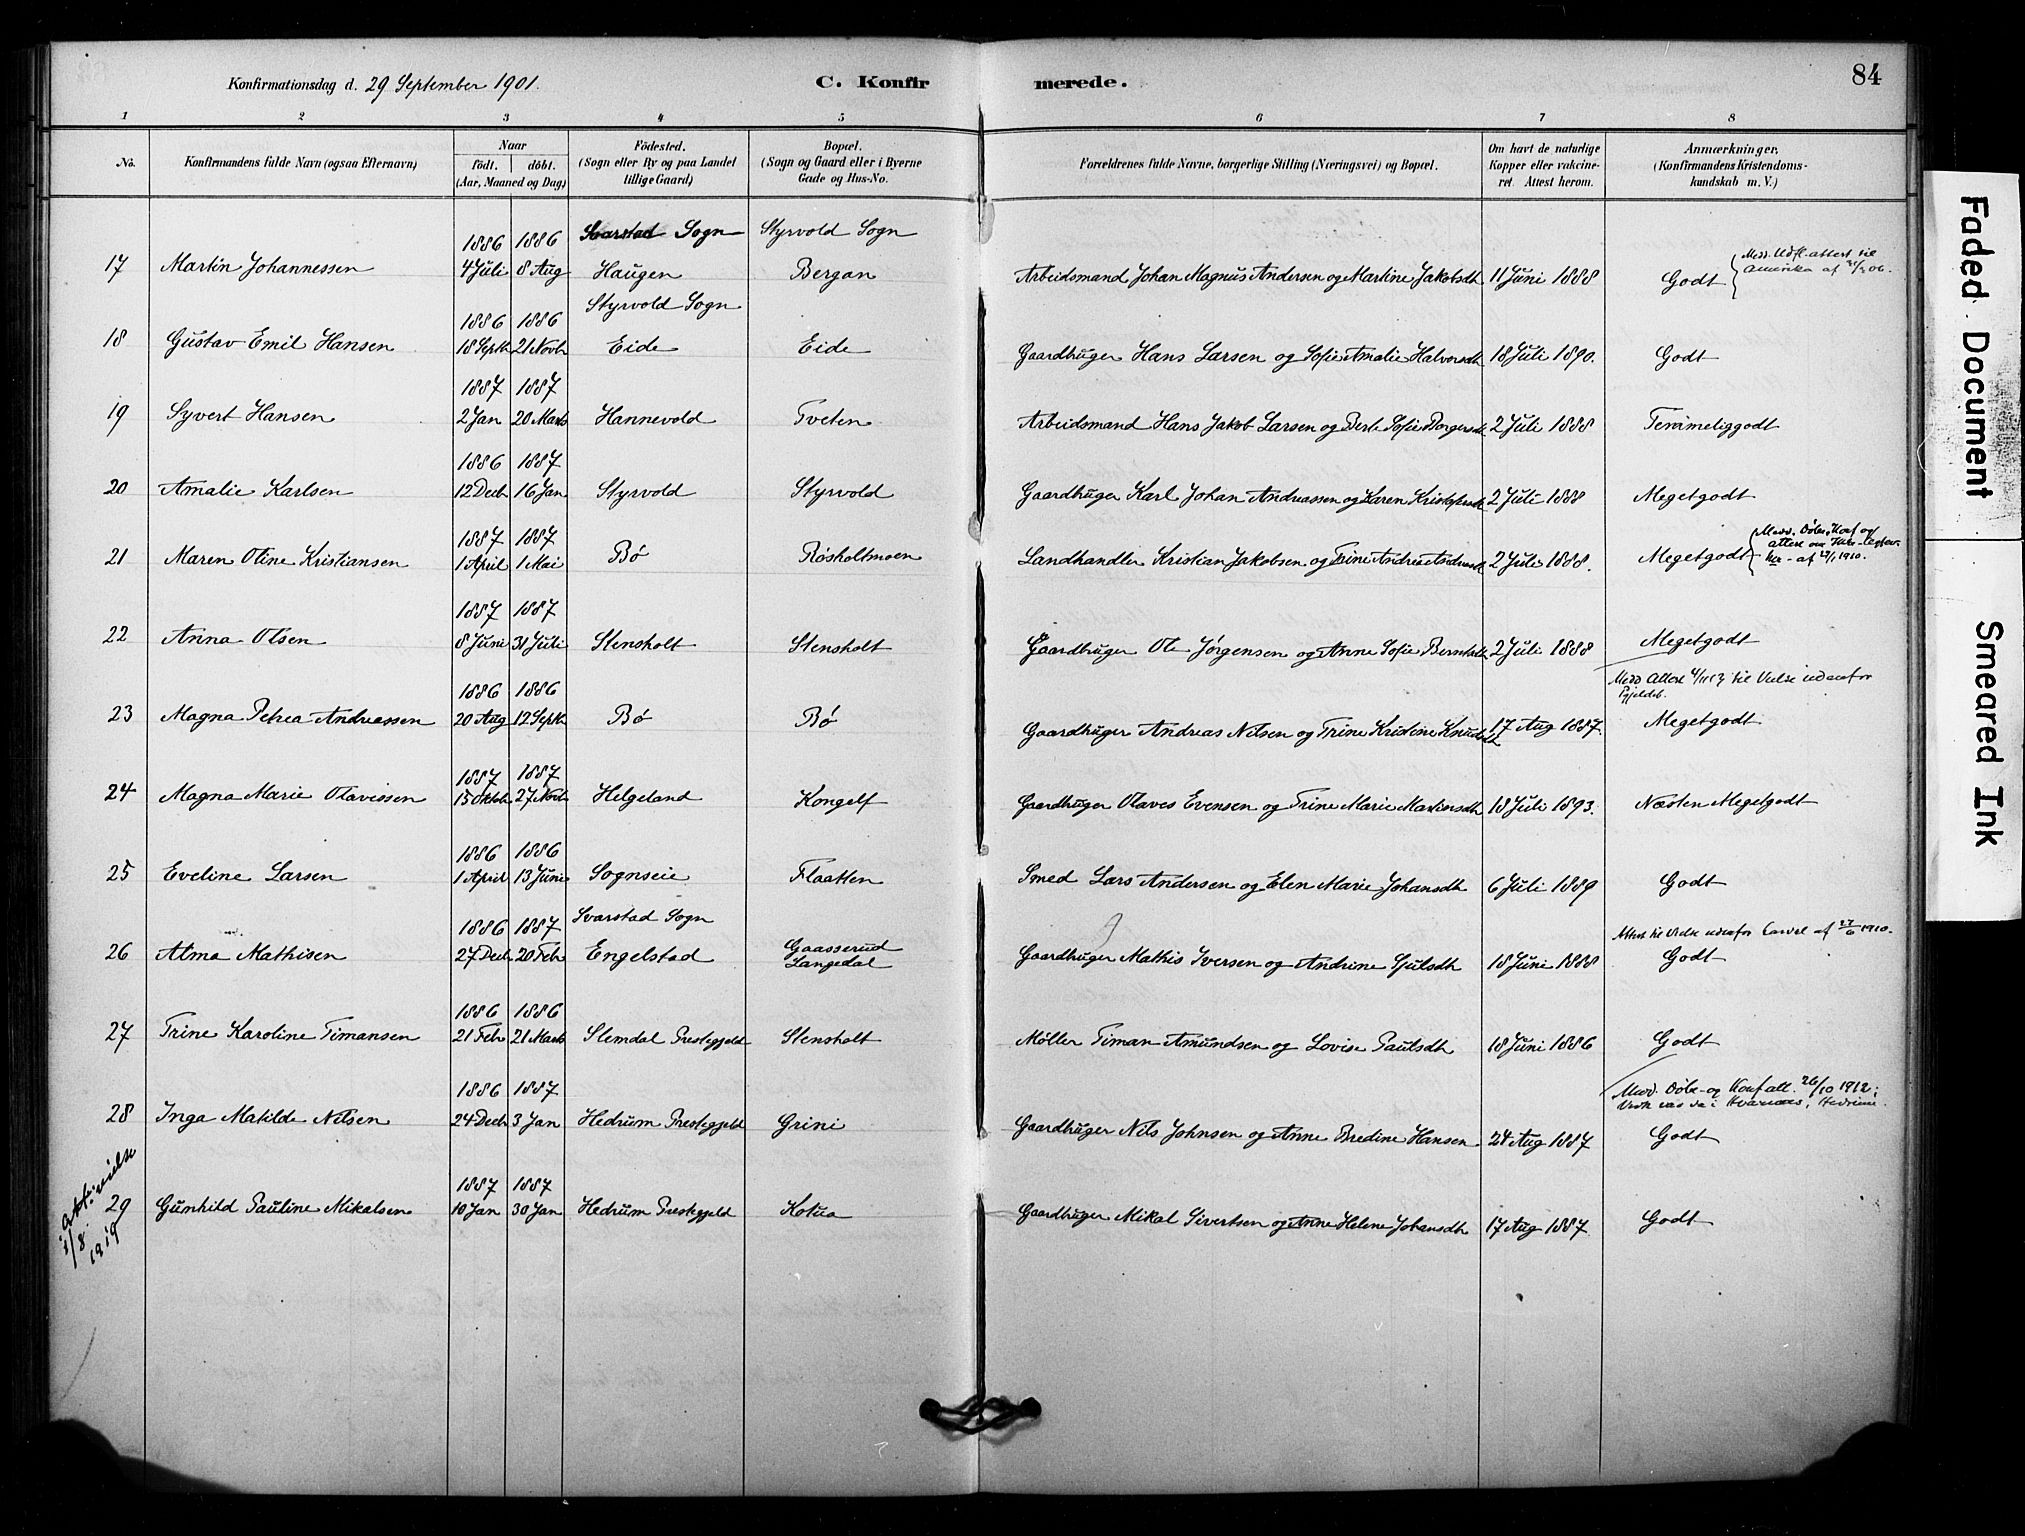 Konfirmationsdag d. 29 September 1901.
C. Konfirmerede.
84
1 2 3 4 5 6 7 8
No. Konfirmandens fulde Navn (ogsaa Efternavn) Naar födt. döbt. (Aar, Maaned og Dag) Födested. (Sogn eller By og paa Landet tillige Gaard) Bopæl. (Sogn og Gaard eller i Byerne Gade og Hus-No. Forældrenes fulde Navne, borgerlige Stilling (Næringsvei) og Bopæl. Om havt de naturlige Kopper eller vakcineret. Attest herom. Anmærkninger. (Konfirmandens Kristendomskundskab m. V.)
1886 1886 Svarstad Sogn Styrvold Sogn
17 Martin Johannessen 4 Juli 8 Aug Haugen Bergan Arbeidsmand Johan Magnus Andersen og Martine Jakobsdtr 11 Juni 1888 Godt Medd. Udfl. attest til Amerika af 06.
1886 1886 Styrvold Sogn
18 Gustav Emil Hansen 18 Septb 21 Novb Eide Eide Gaardbruger Hans Larsen og Sofie Amalie Halvorsdtr 18 Juli 1890. Godt
1887 1887
19 Syvert Hansen 2 Jan 20 Marts Hannevold Tveten Arbeidsmand Hans Jakob Larsen og Berte Sofie 2 Juli 1888 Temmeliggodt
1886 1887
20 Amalie Karlsen 12 Decb 16 Jan Styrvold Styrvold Gaardbruger Karl Johan Andreassen og Karen Kristofersdtr 2 Juli 1888 Megetgodt
1887 1887
21 Maren Oline Kristiansen 1 April 1 Mai Bø Røsholtmoen Landhandler Kristian Jakobsen og Trine Andrea 2 Juli 1888. Megetgodt Medd. Døbe, Konf og attest om af 1910.
1887 1887
22 Anna Olsen 8 Juni 31 Juli Stensholt Stensholt Gaardbruger Ole Jørgensen og Anne Sofie 2 Juli 1888 Megetgodt
Medd Attest til Vielse udenfor Pgjeldet.
1886 1886
23 Magna Petrea Andreassen 20 Aug 12 Septb Bø Bø Gaardbruger Andreas Nilsen og Trine Kristine Knudsdtr 17 Aug 1887. Megetgodt
1887 1887
24 Magna Marie Olavessen 15 Oktob 27 Novb Helgeland Kongelf Gaardbruger Olaves Evensen og Trine Marie Martinsdtr 18 Juli 1893. Næsten Megetgodt
1886 1886
25 Eveline Larsen 1 April 13 Juni Sognseie Flaatten Smed Lars Andersen og Elen Marie Johansdtr 6 Juli 1889 Godt
1886 1887 Svarstad Sogn Attest til Vielse udenfor Larvik af 27/6 1910.
26 Alma Mathisen 27 Decb 20 Feb Engelstad Gaasserud Langedal Gaardbruger Mathis Iversen og Andrine Gjulsdtr 18 Juni 1888 Godt
1886 1886
27 Trine Karoline Timansen 21 Febr 21 Marts Slemdal Prestegjeld Stensholt Møller Timan Amundsen og Lovise Paulsdtr 18 Juni 1886 Godt
1886 1887 Medd. Døbe- og Konf att. 26/10 1912; Hvarnes, Hedrum.
28 Inga Matilde Nilsen 24 Decb 3 Jan Hedrum Prestegjeld Grini Gaardbruger Nils Johnsen og Anne Bredine Hansen 24 Aug 1887 Godt
1887 1887
29 Gunhild Pauline Mikalsen 10 Jan 30 Jan Hedrum Prestegjeld Kotua Gaardbruger Mikal Sivertsen og Anne Helene Johansdtr 17 Aug 1887 Godt
att: vielse
1/8 1919
Faded Document
Smeared Ink